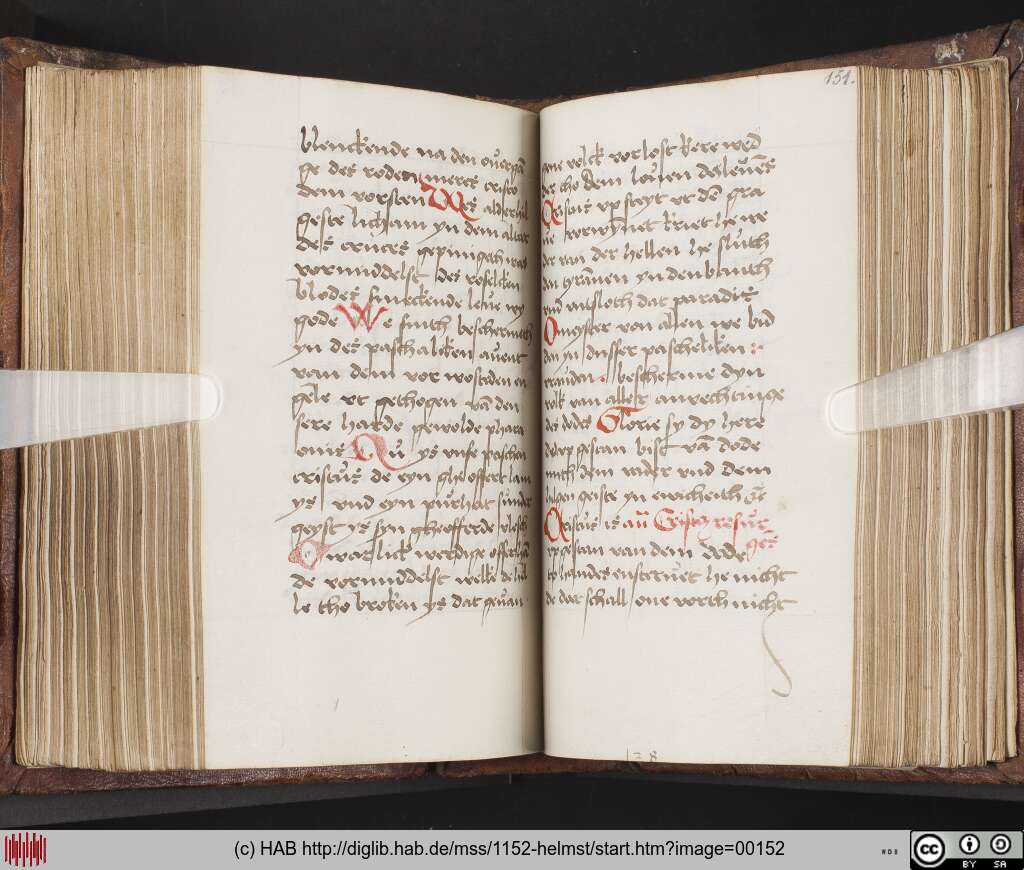 blenckende na den ouerga
ge des roden meres cristo
dem vorsten Des alderhil
geste licham yn dem altar
des cruces gepiniget was
vormiddelst des roselcken
blodes smeckende leue wy
gode We sinth beschermeth
yn des paschalcken auent
van dem vorwostden en
gele vt gethogen van den
sere harde gewolde phara
onis Nu ys vnse paschen
cristus de eyn gheoffert lam
ys vnd eyn purhat sunder
geyst ys syn gheofferde vlesch
O warlick werdige offerhan
de vormiddelst welke de hel
le tho broken ys dat geuan
151.
gene volck vorlost kere wed
der tho dem louen des leuens
Cristus vp steyt vt dem gra
ue vorwynnet kriet he we
der van der hellen he sluth
den grauen yn den banth
vnd entsloth dat paradis
O mester van allen we bid
den yn dusser paschelken
frauden bescherme dyn
volk van aller anvechtinge
des dodes Glorie sy dy here
de vp gestan bist van dode
mith dem vader vnd dem
hilgen geiste yn ewicheith
Cristus is an Cristus resur
ges
vpgestan van dem dode
to handes en steruet he nicht
de doet schall one vorth nicht
138
(c) HAB http://diglib.hab.de/mss/1152-helmst/start.htm?image=00152
WDB
cc
BY SA